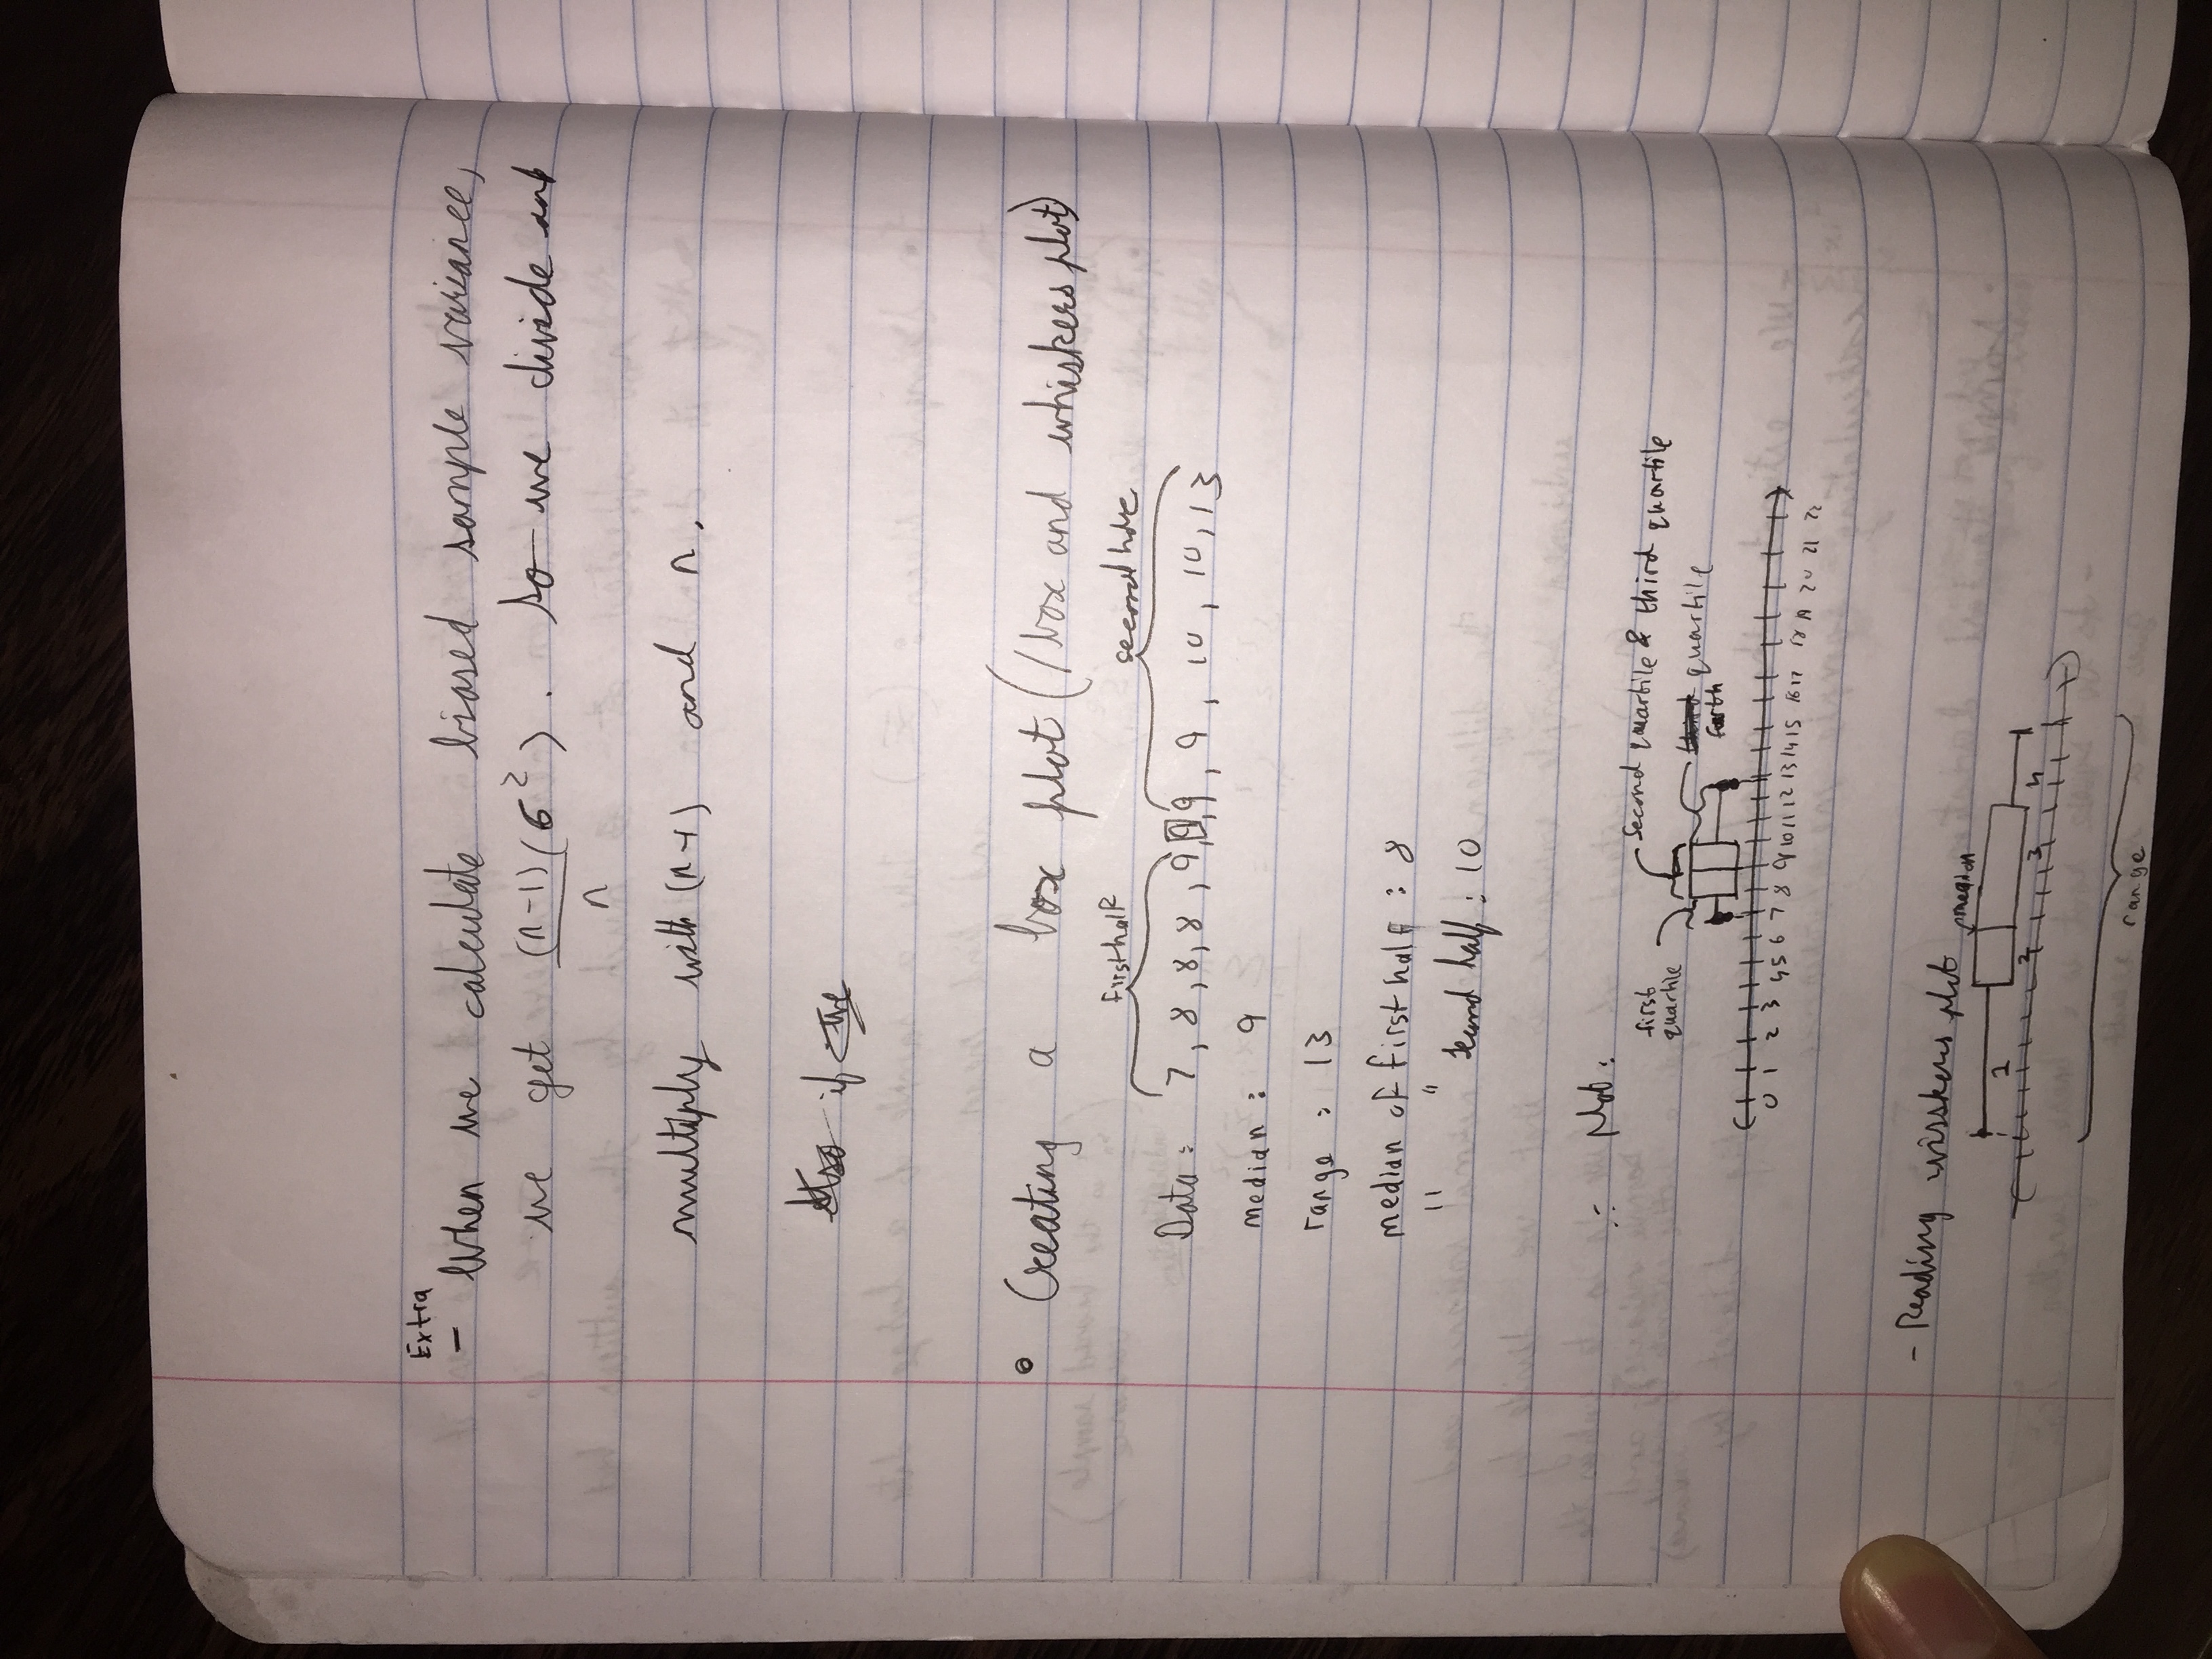 Extra
- When we calculate biased sample variance,
we get (n-1)(σ²) . So we divide and
n
multiply with (n-1) and n.
Also if we
• Creating a box plot (/box and whiskers plot)
first half second half
Data: 7, 8, 8, 8, 9, 9, 9, 9, 10, 10, 13
median : 9
range : 13
median of first half : 8
" " second half : 10
∴ Plot:
second quartile & third quartile
first
quartile
third quartile
forth
0 1 2 3 4 5 6 7 8 9 10 11 12 13 14 15 16 17 18 19 20 21 22
- Reading wisskers plot
median
1 2 3 4
range